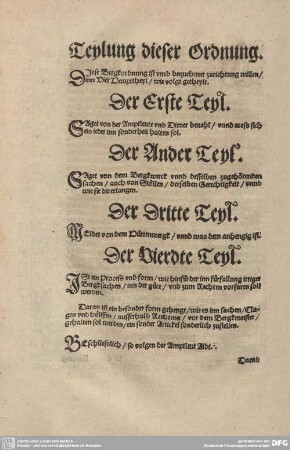 Teylung dieser Ordnung.
Diese Bergkordnung ist vmb bequemer zurichtung willen /
Inn Vier Haupttheyl / wie volgt getheylt.
Der Erste Teyl.
Saget von der Amptleute vnd Diener beuehl / vnnd weß sich
ein jeder inn sonderheit halten sol.
Der Ander Teyl.
Saget von dem Bergkwerck vnnd desselben zugehörenden
sachen / auch von Stöllen / derselben Gerechtigkeit / vnnd
wie sie die erlangen.
Der Dritte Teyl.
Meldet von dem Hüttenwergk / vnnd was dem anhengig ist.
Der Vierdte Teyl.
Ist ein Process vnd form / wie hinfürder inn fürfallung jrriges
Bergksachen / inn der güte / vnd zum Rechten vorfaren sol
werden.
Daran ist ein besonder form gehengt / wie es inn sachen / Cla-
gen vnd hülffen / ausserhalb Rechtens / vor dem Bergkmeister /
gehalten sol werden / ein sonder Artickel sonderlich zufielen.
Beschließlich / so volgen der Amptleut Aidt.
Damit